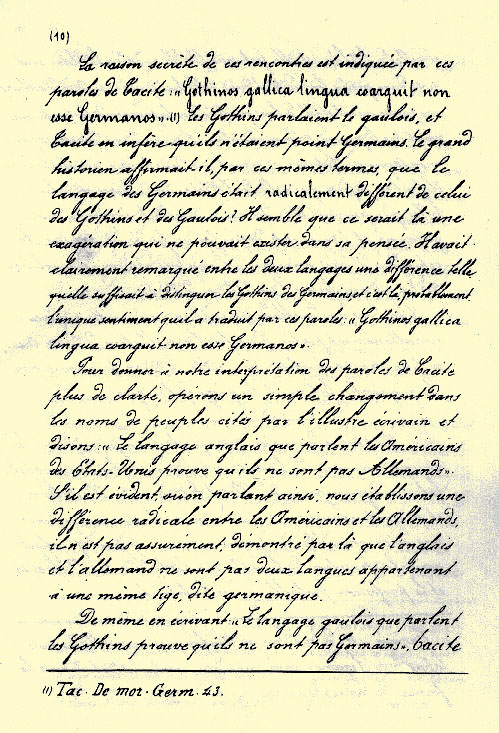 (10)
La raison secrète de ces rencontres est indiquée par ces
paroles de Tacite : « Gothinos gallica lingua coarguit non
esse Germanos ». (1) les Gothins parlaient le gaulois, et
Tacite en infère qu'ils n'étaient point Germains. Le grand
historien affirmait-il, par ces mêmes termes, que le
langage des Germains était radicalement différent de celui
des Gothins et des Gaulois ? Il semble que ce serait là une
exagération qui ne pouvait exister dans sa pensée. Il avait
clairement remarqué entre les deux langages une différence telle
qu'elle suffisait à distinguer les Gothins des Germains et c'est là, probablement
l'unique sentiment qu'il a traduit par ces paroles : « Gothinos gallica
lingua coarguit non esse Germanos ».
Pour donner à notre interprétation des paroles de Tacite
plus de clarté, opérons un simple changement dans
les noms de peuples cités par l'illustre écrivain et
disons : « Le langage anglais que parlent les Américains
des États-Unis prouve qu'ils ne sont pas Allemands ».
S'il est évident, qu'en parlant ainsi, nous établissons une
différence radicale entre les Américains et les Allemands,
il n'est pas assurément, démontré par là que l'anglais
et l'allemand ne sont pas deux langues appartenant
à une même tige, dite germanique.
De même en écrivant « Le langage gaulois que parlent
les Gothins prouve qu'ils ne sont pas Germains », Tacite
(1) Tac. De mor. Germ. 43.